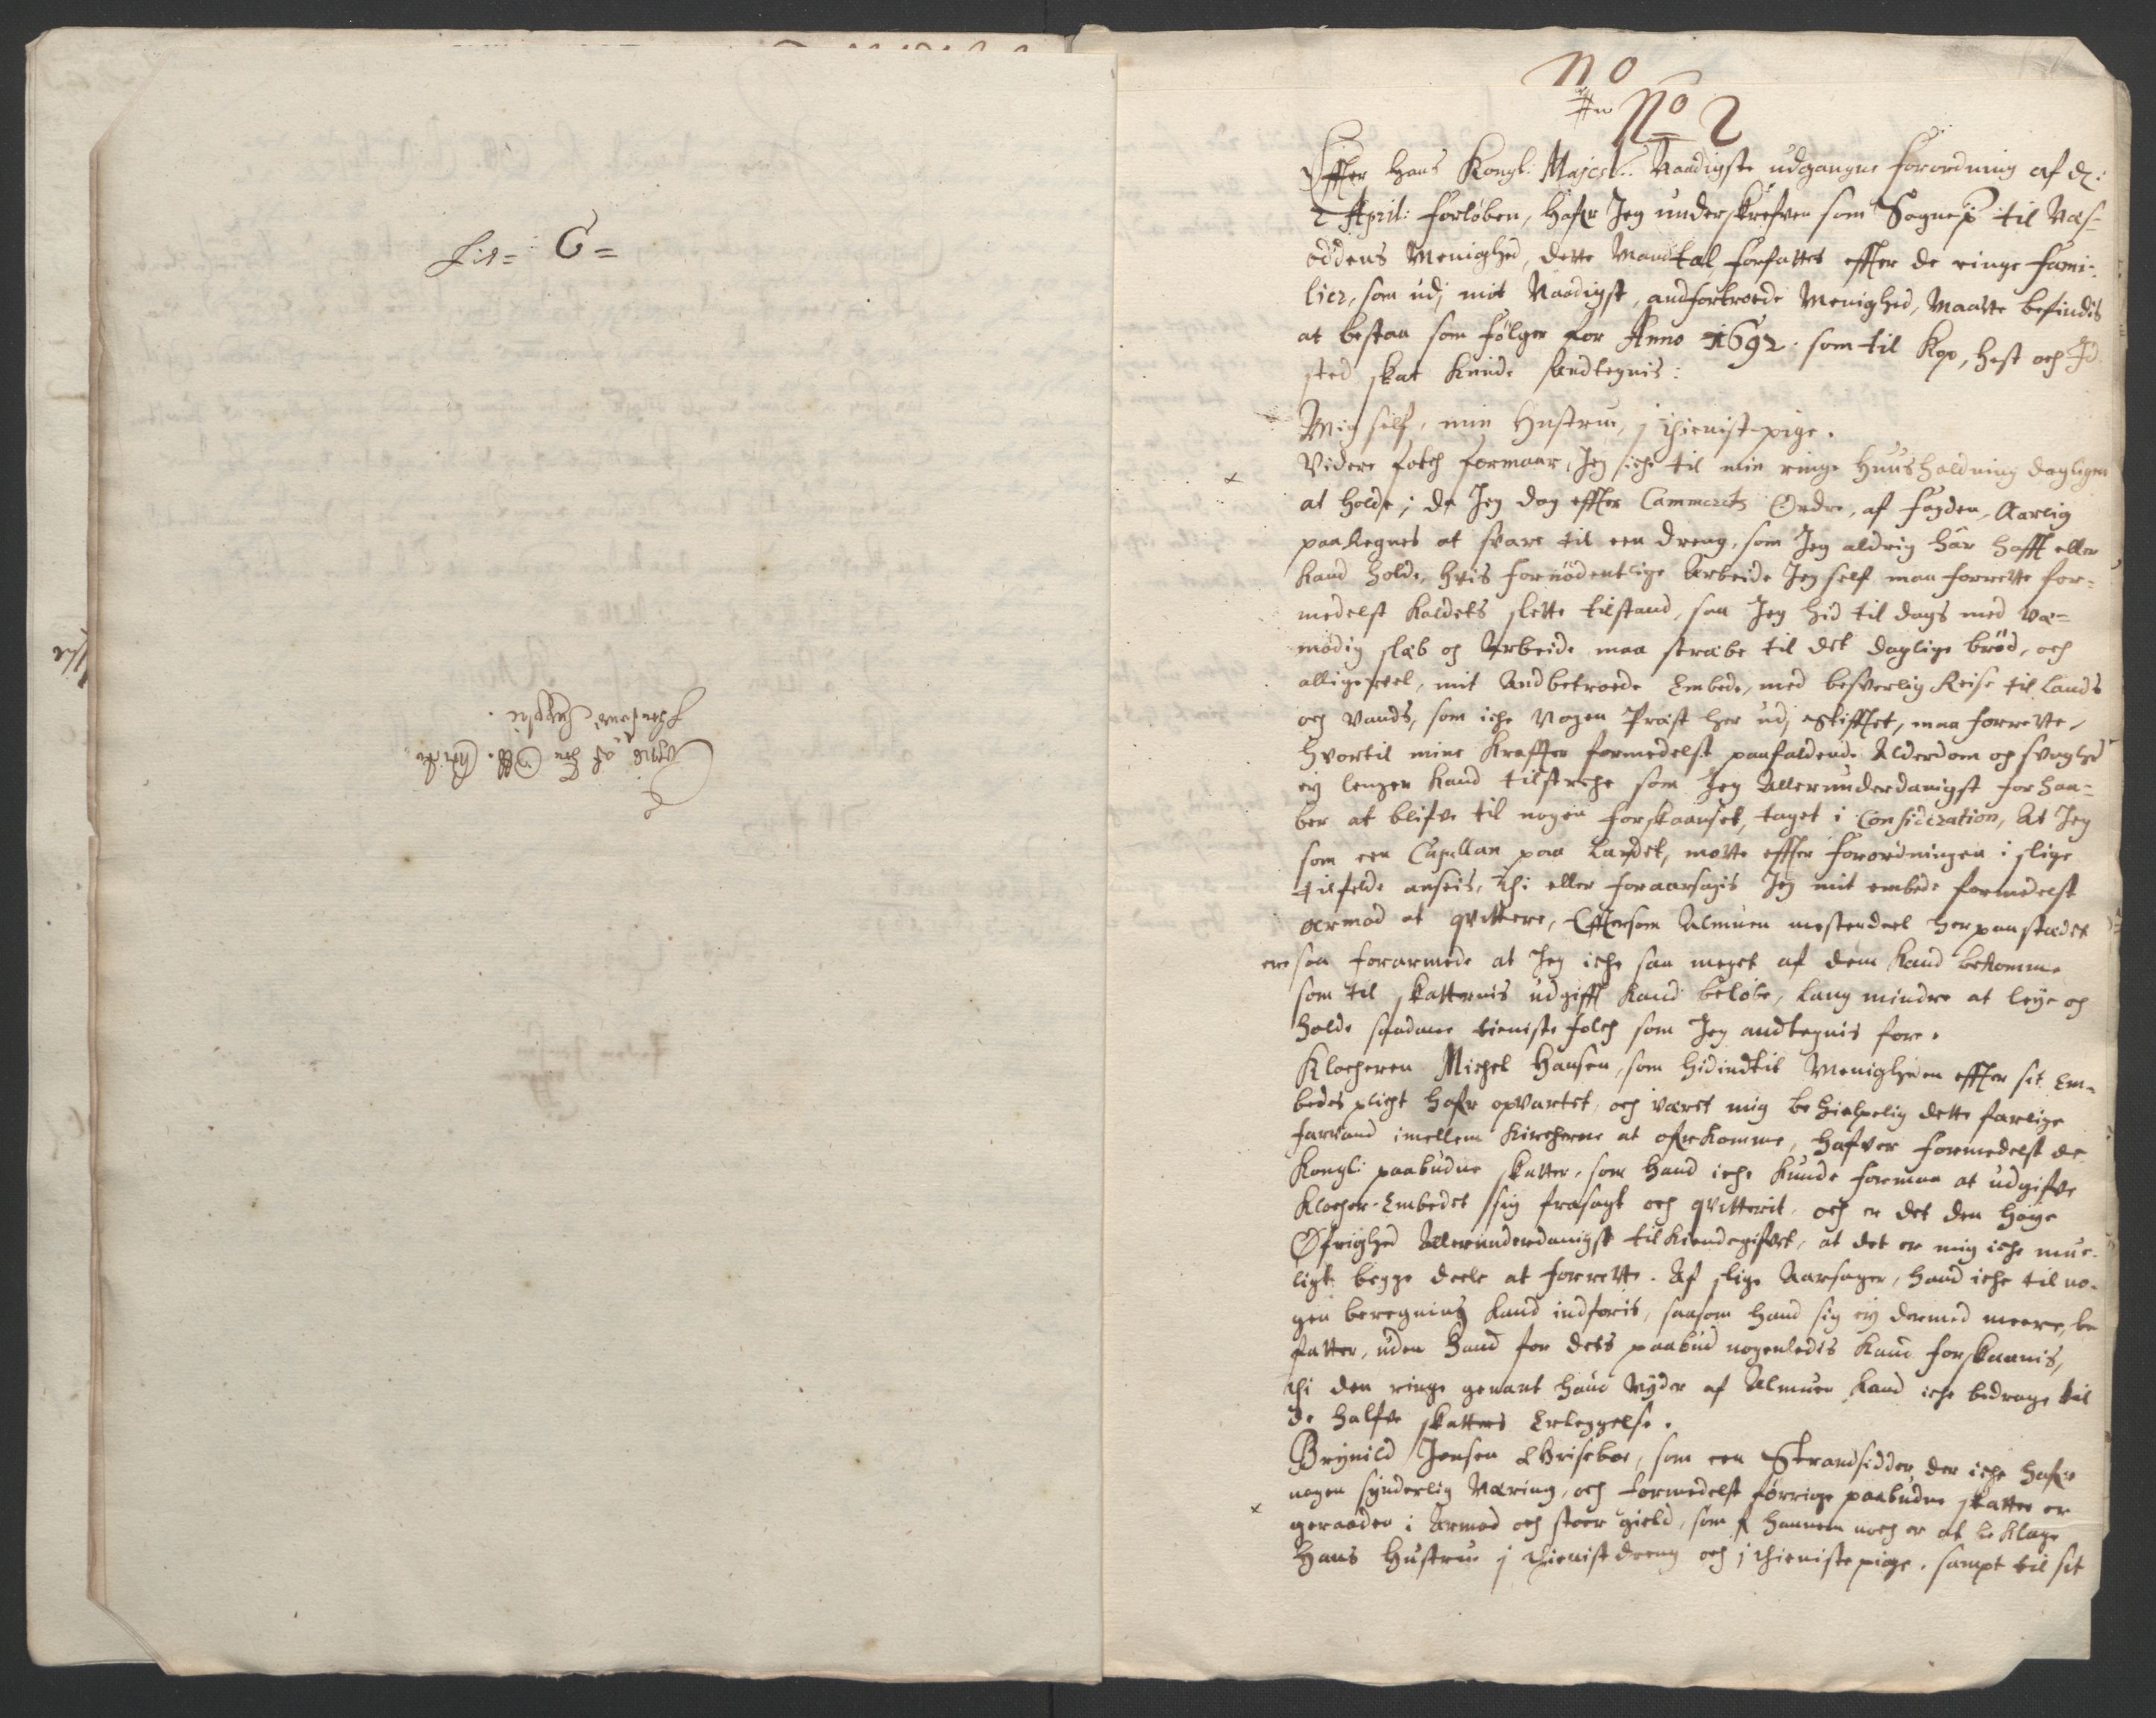 Lit= C=
No
No 2
Effter Hans Kongl: Majest: Naadigste udgangne forordning af d.
2 April: forløben, hafr Jeg underskrefven som Sognep til Næs-
oddens Menighed, dette Mandtal forfattet effter de ringe fami-
lier, som udj mit Naadigst, andfortroede Menighed, Maatte befindis
at bestaa som følger for Anno 1692. som til Kop, hest och Jld
sted skat kunde handtegnis:
Mig self, min Hustrue, j thieniste pige.
Videre folch formaar Jeg iche til min ringe Huusholdning dagligen
at holde; da Jeg dog effter Cammerets Ordre, af fogden, Aarlig
paaRegnes at svare til een dreng, som Jeg aldrig här hafft eller
kand holde, hvis fornödentlige Arbeide Jeg self maa forrette for-
medelst kaldets slette tilstand, saa Jeg hid til dags med
mödig slæb og Arbeide maa stræbe til det daglige bröd, och
alligevel, mit Andbetroede Embede, med besverlig Reise til Lands
och Vands, som iche Nogen Præst her udj Stifftet, maa forrette,
hvortil mine Kraffter formedelst paafaldende Alderdom og svaghed
ey lenger kand tilstreche som Jeg Allerunderdanigst forhaa-
ber at blifve til nogen forskaansel, taget i Consideration, At Jeg
som een Capellan paa Landet, motte effter forordningen i slige
tilfelde anseis, thi eller foraarsagis Jeg mit embede formedelst
armod at qvittere, Efftersom Almuen mestendeel her paa stædet
ere saa forarmede at Jeg iche saa meget af dem kand bekomme
som til skatternis udgifft kand beløbe, lang mindre at leye og
holde saadanne tieniste folch som Jeg andtegnis fore.
Klocheren Michel Hansen, som hidindtil Menigheden effter sit Em-
bedes plicht hafr opvartet, och været mig behielpelig dette farlige
farvand imellem Kircherne at ofrkomme, hafver formedelst de
Kongl: paabudne skatter, som hand iche kunde formaa at udgifve
Klocher-Embedet sig frasagt och qvitterit, och er det den høye
Øfrighed Allerunderdanigst tilkiendegifvet, at det er mig iche mue-
ligt begge deele at forrette. Af slige Aarsager, hand iche til no-
gen beregning kand indføris, saasom hand sig ey dermed meere be
fatter, uden hand for dets paabud nogenledis kand forskaanis,
thi den ringe genant hand Nyder af Almuen kand iche bedrage til
de halfve skatters Erleggelse.
Brynild Jensen, som een Strandsidder der iche hafr
nogen synderlig Næring, och formedelst førrige paabudne skatter er
geraaden i Armod och stoer gield, som hannem noch er at beklage
Hans Hustrue j thienist dreng och j thieniste pige. sampt til sit